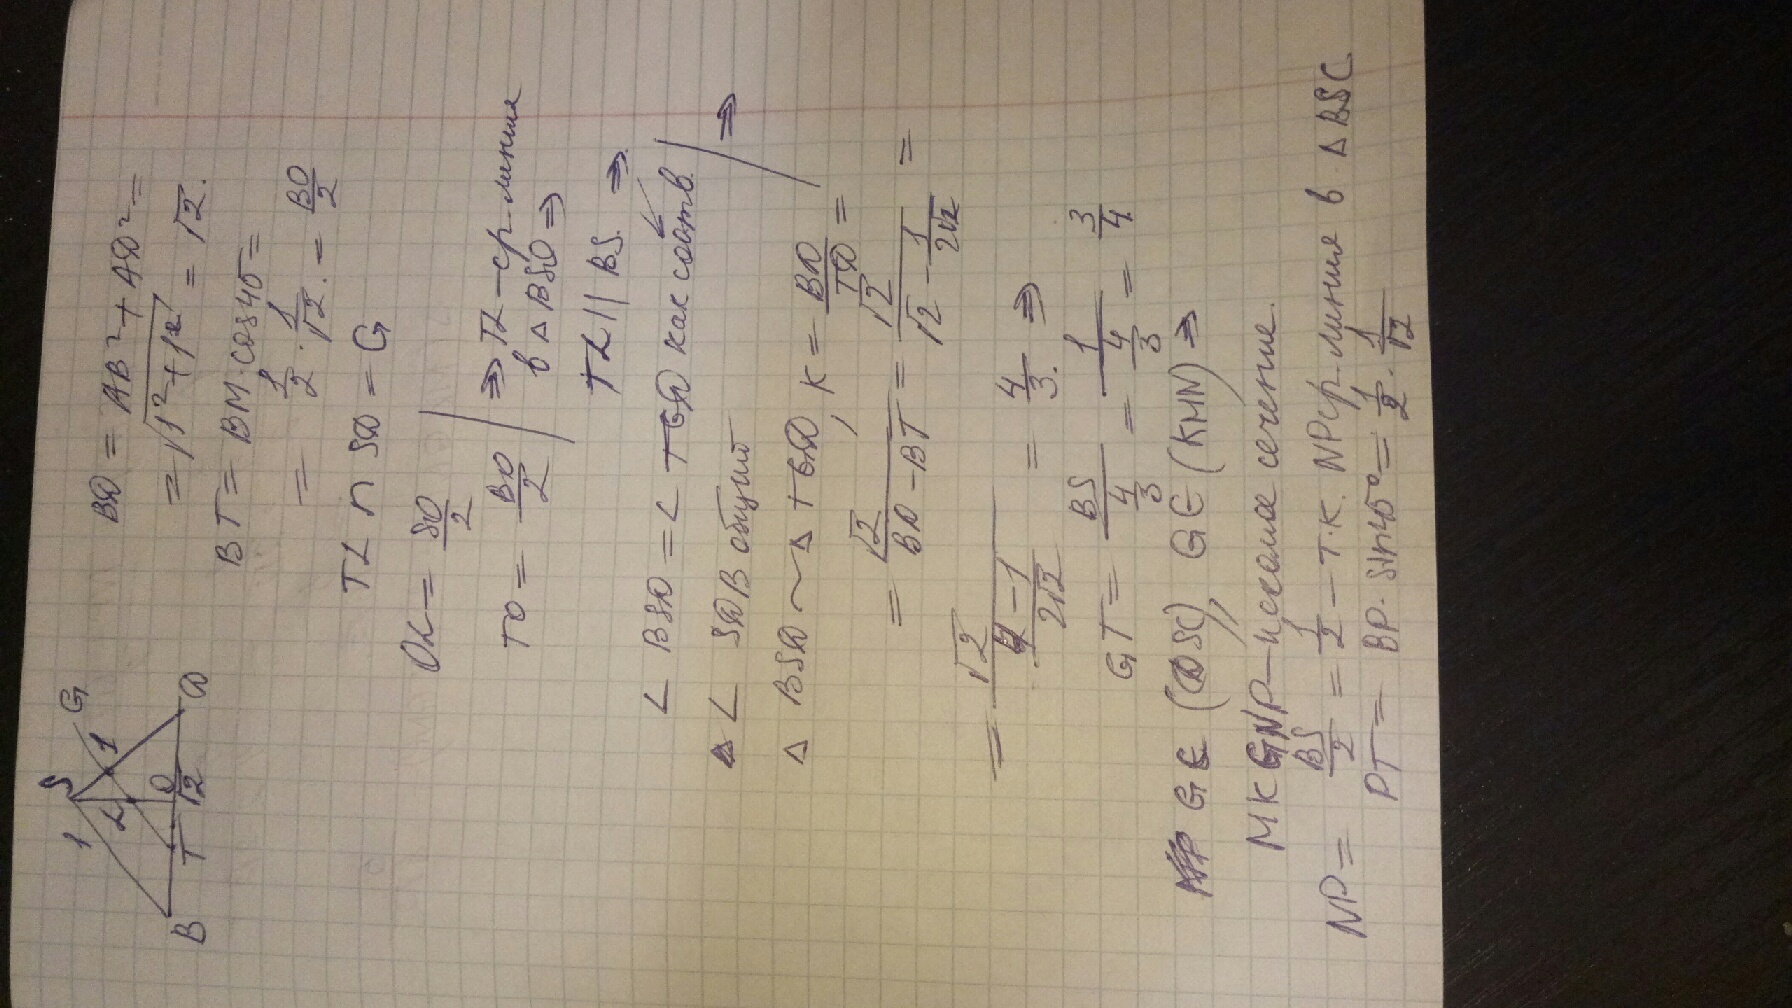 S
G
1
L
1
B
T
O
D
√2
BD = AB² + AD² =
= √1² + 1² = √2.
BT = BM · cos 45 =
= 1/2 · 1/√2 = BO/2
TL ∩ SD = G
OL = SO/2
TO = BO/2
⇒ TL – ср линия
в △ BSO ⇒
TL || BS. ⇒
∠ BSD = ∠ TGD как соотв.
∠ SDB общий
⇒
△ BSD ~ △ TGD, K = BD/TD =
= √2/(BD – BT) = √2/(√2 – 1/(2√2)) =
= √2/((4 – 1)/(2√2)) = 4/3. ⇒
GT = BS/(4/3) = 1/(4/3) = 3/4
G ∈ (DSC), G ∈ (KMN) ⇒
MKGNP – искома сечение.
NP = BS/2 = 1/2 – т.к. NP ср линия в △ BSC
PT = BP · sin 45° = 1/2 · 1/√2